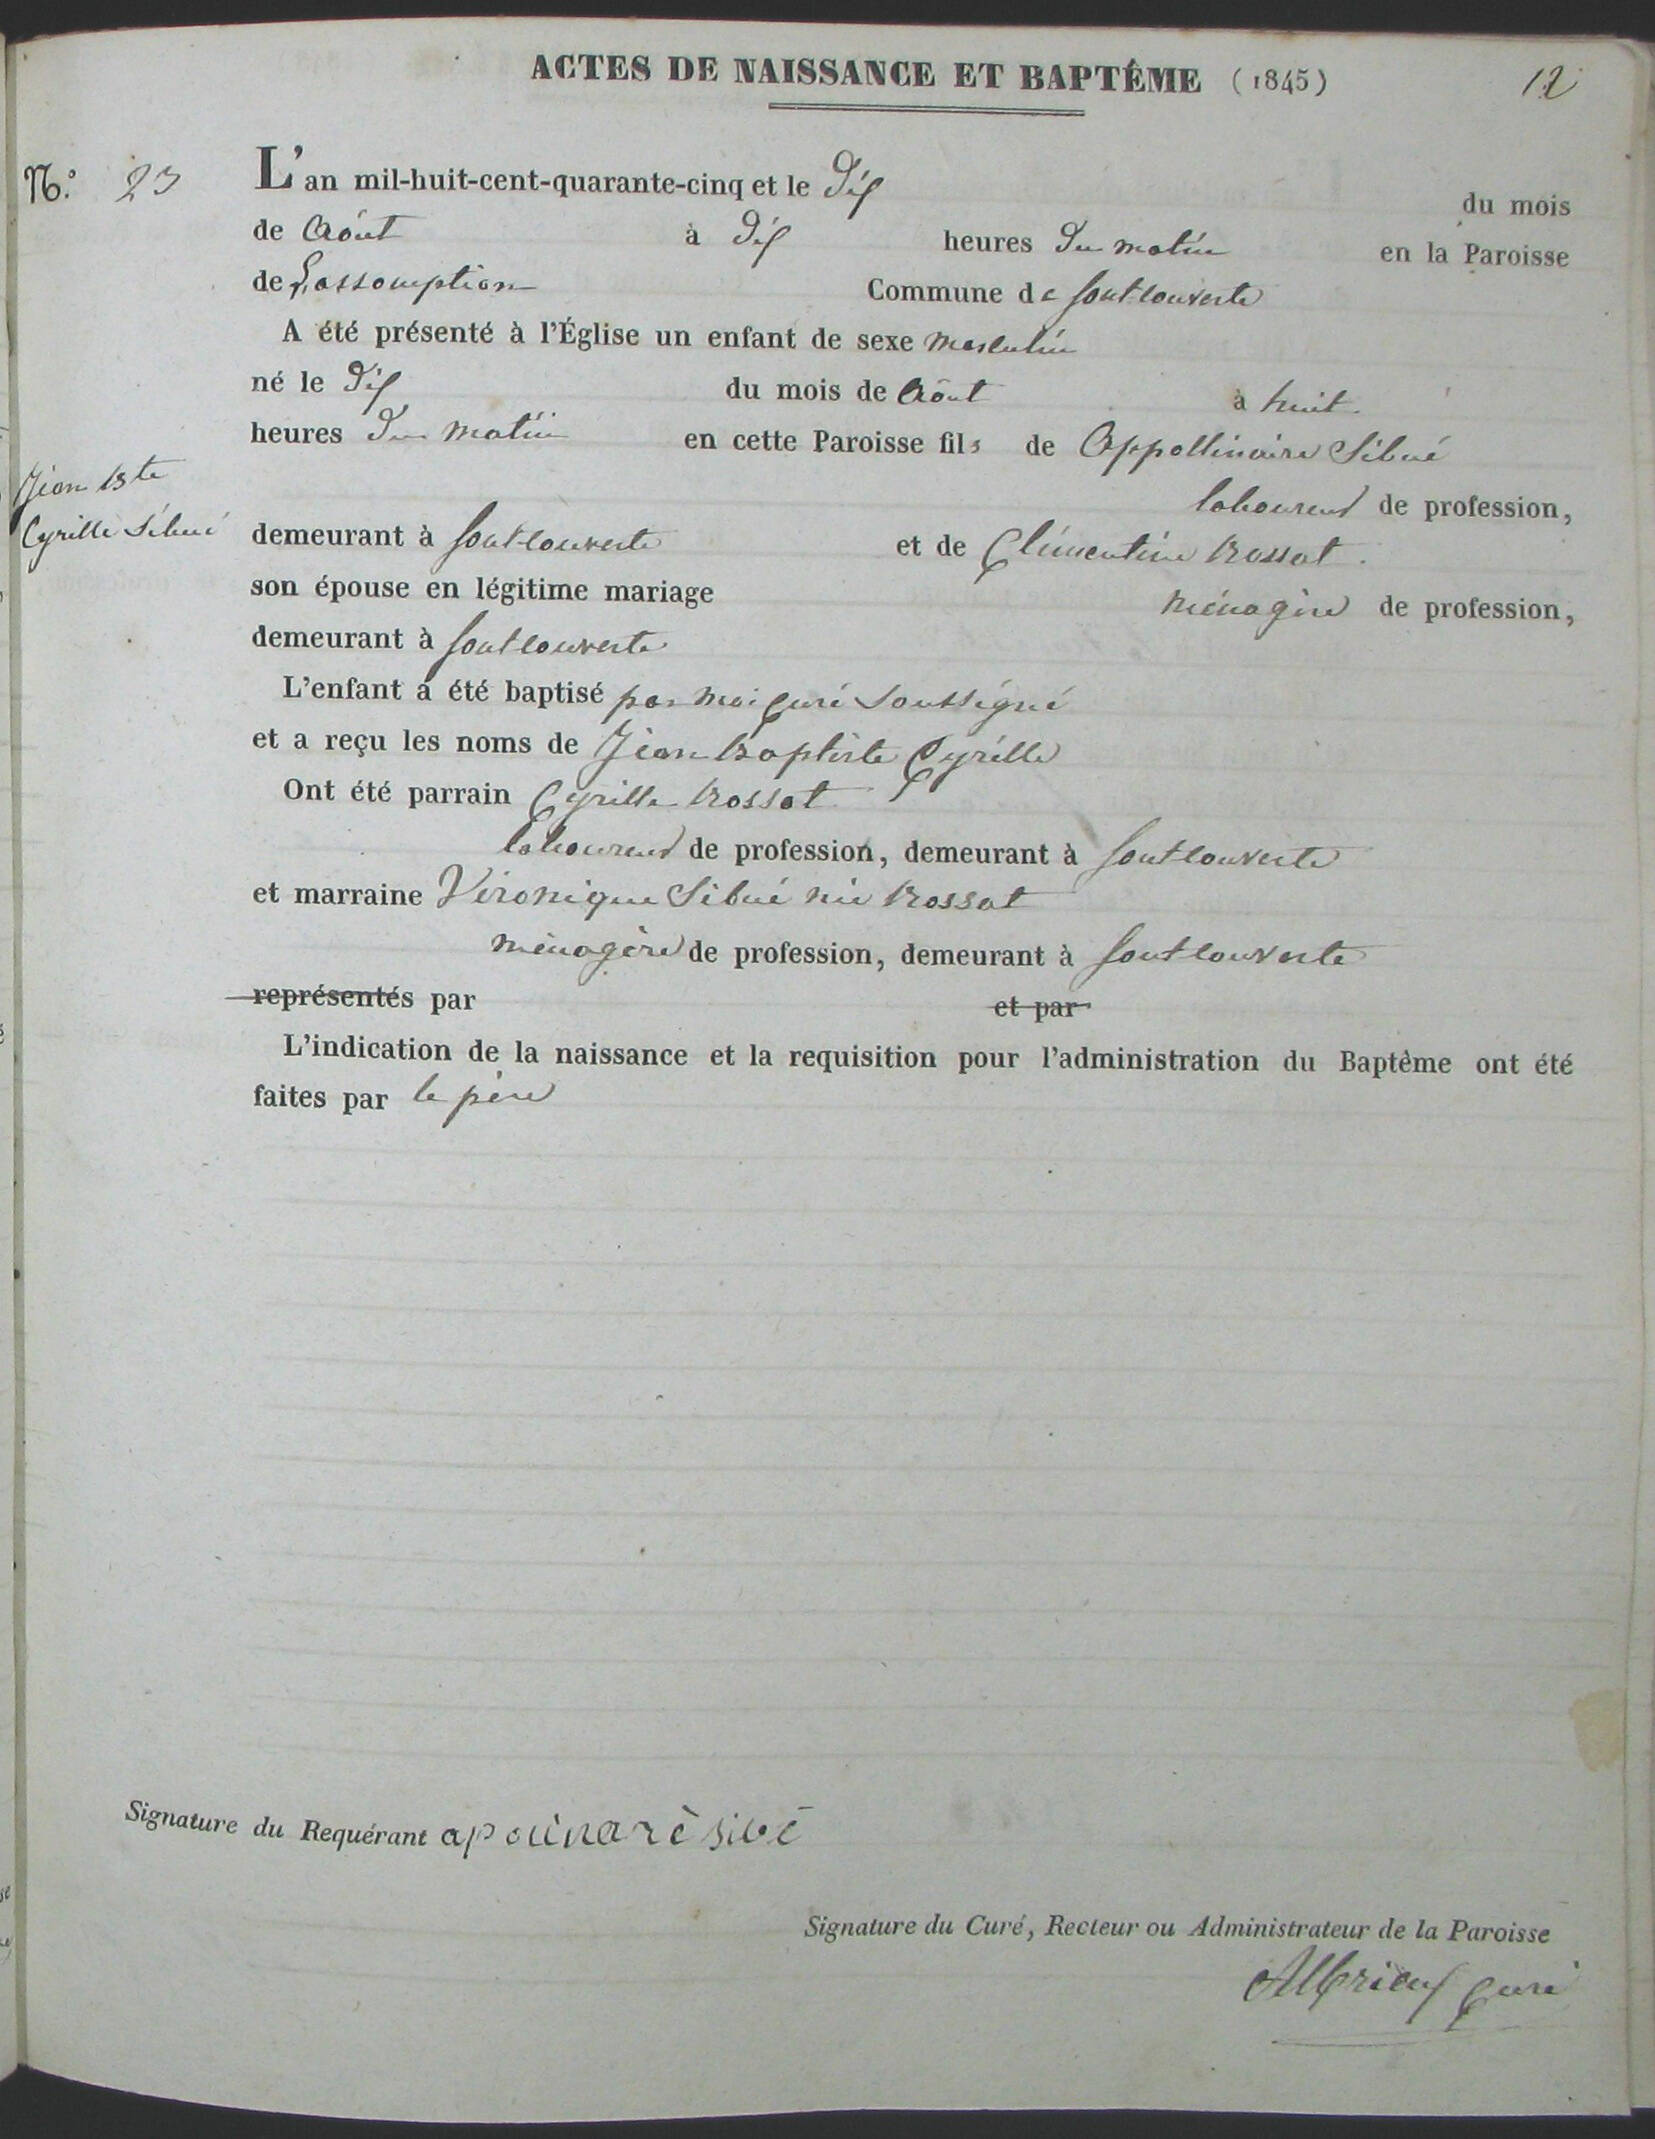 ACTES DE NAISSANCE ET BAPTÊME (1845) 12
N.° 23 L'an mil-huit-cent-quarante-cinq et le Dix du mois
de Août à Dix heures Du matin en la Paroisse
de L'assomption Commune de fontcouverte
A été présenté à l'Église un enfant de sexe masculin
né le Dix du mois de Août à huit
heures Du matin en cette Paroisse fils de Appollinaire Sibué
laboureur de profession,
Jean Bte
Cyrille Sibué
demeurant à fontcouverte et de Clémentine Rossat
son épouse en légitime mariage ménagère de profession,
demeurant à fontcouverte
L'enfant a été baptisé par moi curé soussigné
et a reçu les noms de Jean Baptiste Cyrille
Ont été parrain Cyrille Rossat
laboureur de profession, demeurant à fontcouverte
et marraine Véronique Sibué née Rossat
ménagère de profession, demeurant à fontcouverte
représentés par et par
L'indication de la naissance et la requisition pour l'administration du Baptême ont été
faites par le père
Signature du Requérant
Signature du Curé, Recteur ou Administrateur de la Paroisse
Albrieux curé